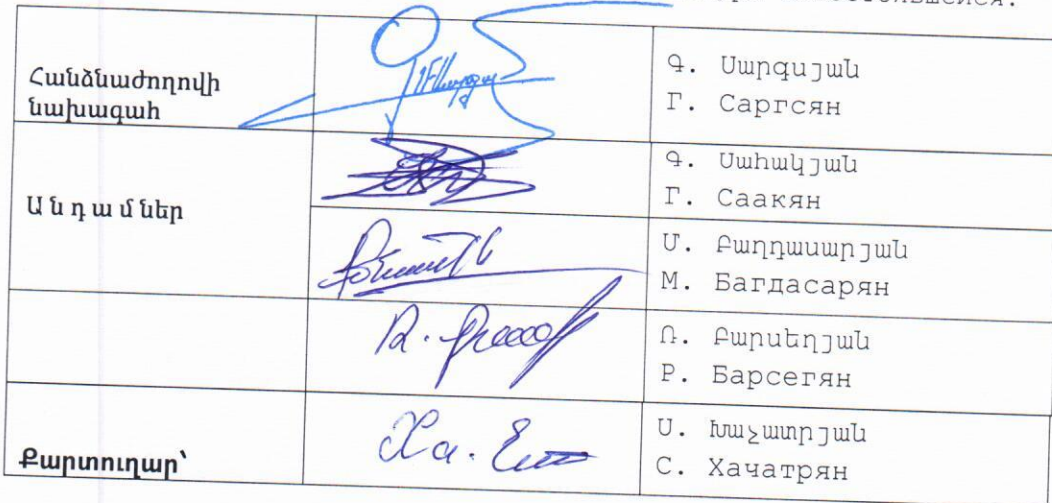 Հանձնաժողովի
նախագահ
Գ. Սարգսյան
Г. Саргсян
Ա ն դ ա մ ներ
Գ. Սահակյան
Г. Саакян
Մ. Բաղդասարյան
М. Багдасарян
Ռ. Բարսեղյան
Р. Барсегян
Քարտուղար՝
Ս. Խաչատրյան
С. Хачатрян